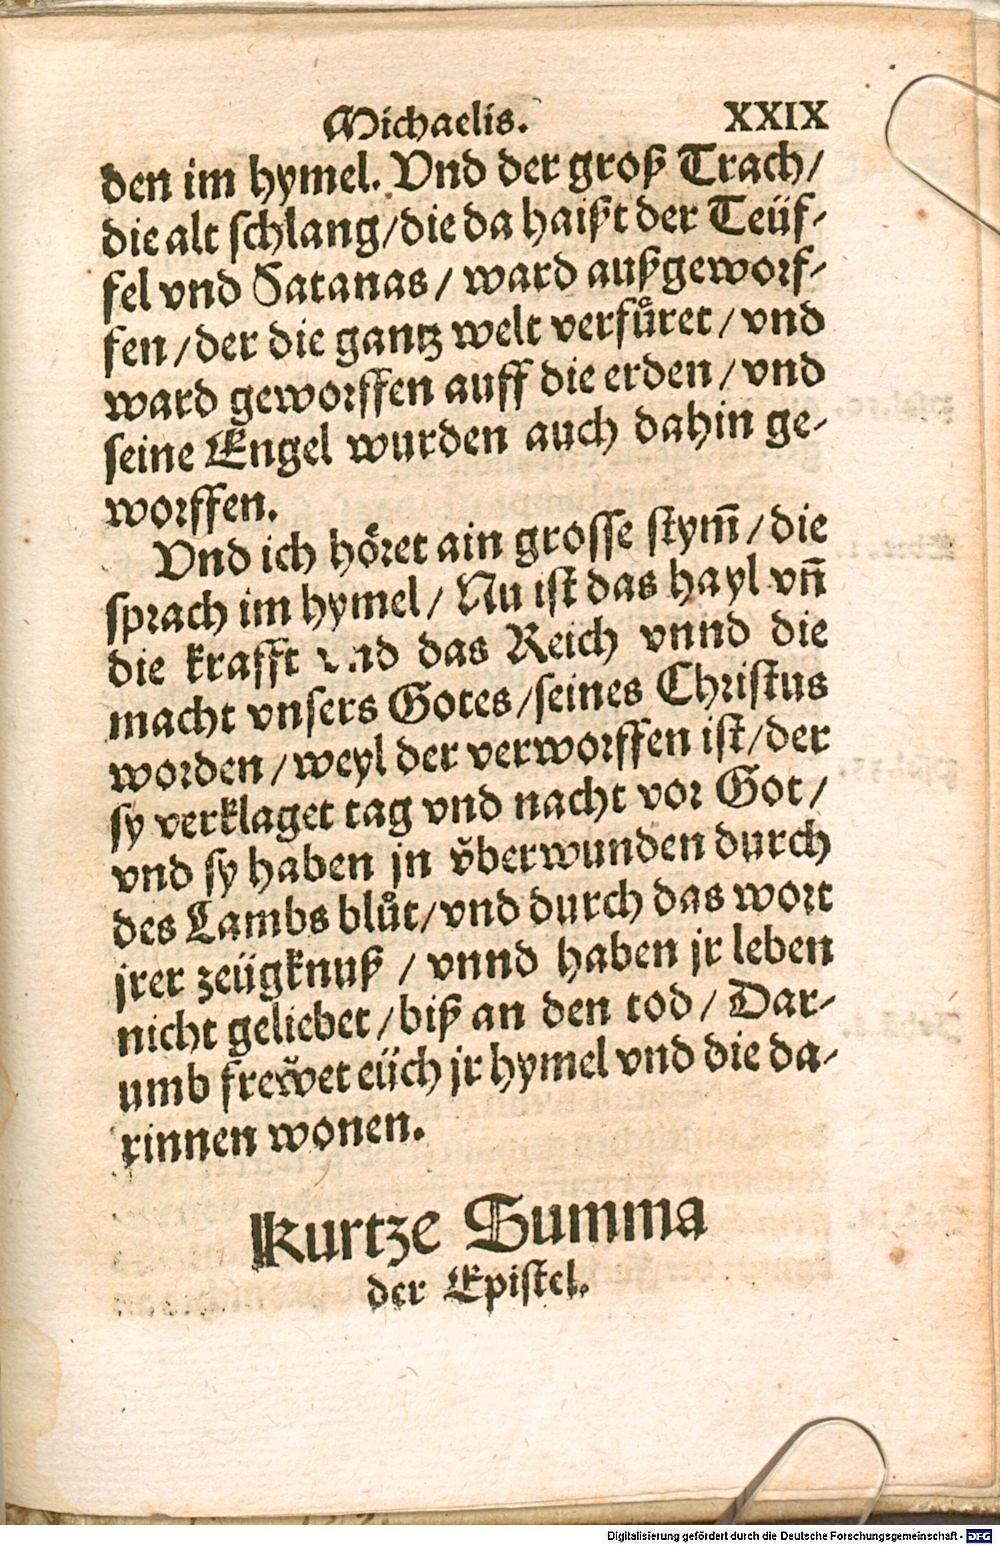 Michaelis. XXIX
den im hymel. Vnd der groß Trach/
die alt schlang/die da haißt der Teüf-
fel vnd Satanas / ward außgeworf-
fen/der die gantz welt verfuͤret / vnd
ward geworffen auff die erden / vnd
seine Engel wurden auch dahin ge-
worffen.
Vnd ich hoͤret ain grosse stym̃ / die
sprach im hymel / Nu ist das hayl vñ
die krafft vnd das Reich vnnd die
macht vnsers Gotes /seines Christus
worden /weyl der verworffen ist/der
sy verklaget tag vnd nacht vor Got /
vnd sy haben jn vͤberwunden durch
des Lambs bluͦt/vnd durch das wort
jrer zeügknuß / vnnd haben jr leben
nicht geliebet /biß an den tod / Dar-
umb frewͤet eüch jr hymel vnd die da-
rinnen wonen.
Kurtze Summa
der Epistel.
Digitalisierung gefördert durch die Deutsche Forschungsgemeinschaft - DFG